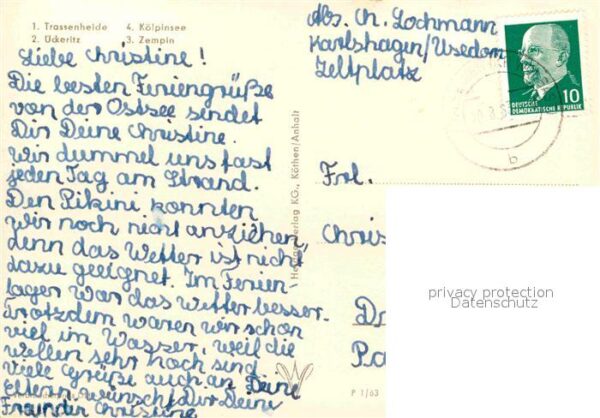 1. Trassenheide 4. Kölpinsee
2. Ückeritz 3. Zempin
Liebe Christine!
Die besten Feriengrüße
von der Ostsee sendet
Dir Deine Christine.
Wir dummel uns fast
jeden Tag am Strand.
Den Pikini konnten
wir noch nicht anziehen,
denn das Wetter ist nicht
dazu geeignet. Im Ferien-
lager war das Wetter besser.
Trotzdem waren wir schon
viel im Wasser, weil die
Wellen sehr hoch sind
Viele Grüße auch an Deine
Eltern wünscht Dir Deine
Freundin Christine
Verlag KG., Köthen/Anhalt
Abs. Ch. Lochmann
Karlshagen/Usedom
Zeltplatz
10
DEUTSCHE
DEMOKRATISCHE REPUBLIK
b
Frl.
Chris
Dr
P 1/63
privacy protection
Datenschutz